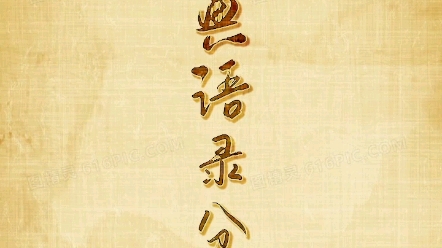 典语录分